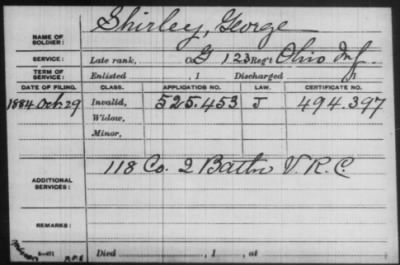 NAME OF SOLDIER: Shirley, George
SERVICE: Late rank, Co. G 123 Reg't Ohio Inf.
TERM OF SERVICE: Enlisted , 1 Discharged , 1
DATE OF FILING. CLASS. APPLICATION NO. LAW. CERTIFICATE NO.
1884 Oct. 29 Invalid, 525.453 J 494.397
Widow,
Minor,
ADDITIONAL SERVICES: 118 Co. 2 Battn V.R.C.
REMARKS:
Died , 1 , at